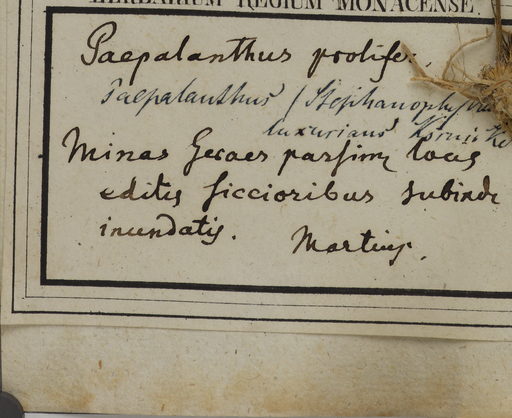 HERBARIUM REGIUM MONACENSE.
Paepalanthus prolifer.
Paepalanthus (Stephanophyllum
luxurians Körnicke
Minas Geraes passim locis
editis siccioribus subinde
inundatis. Martius.